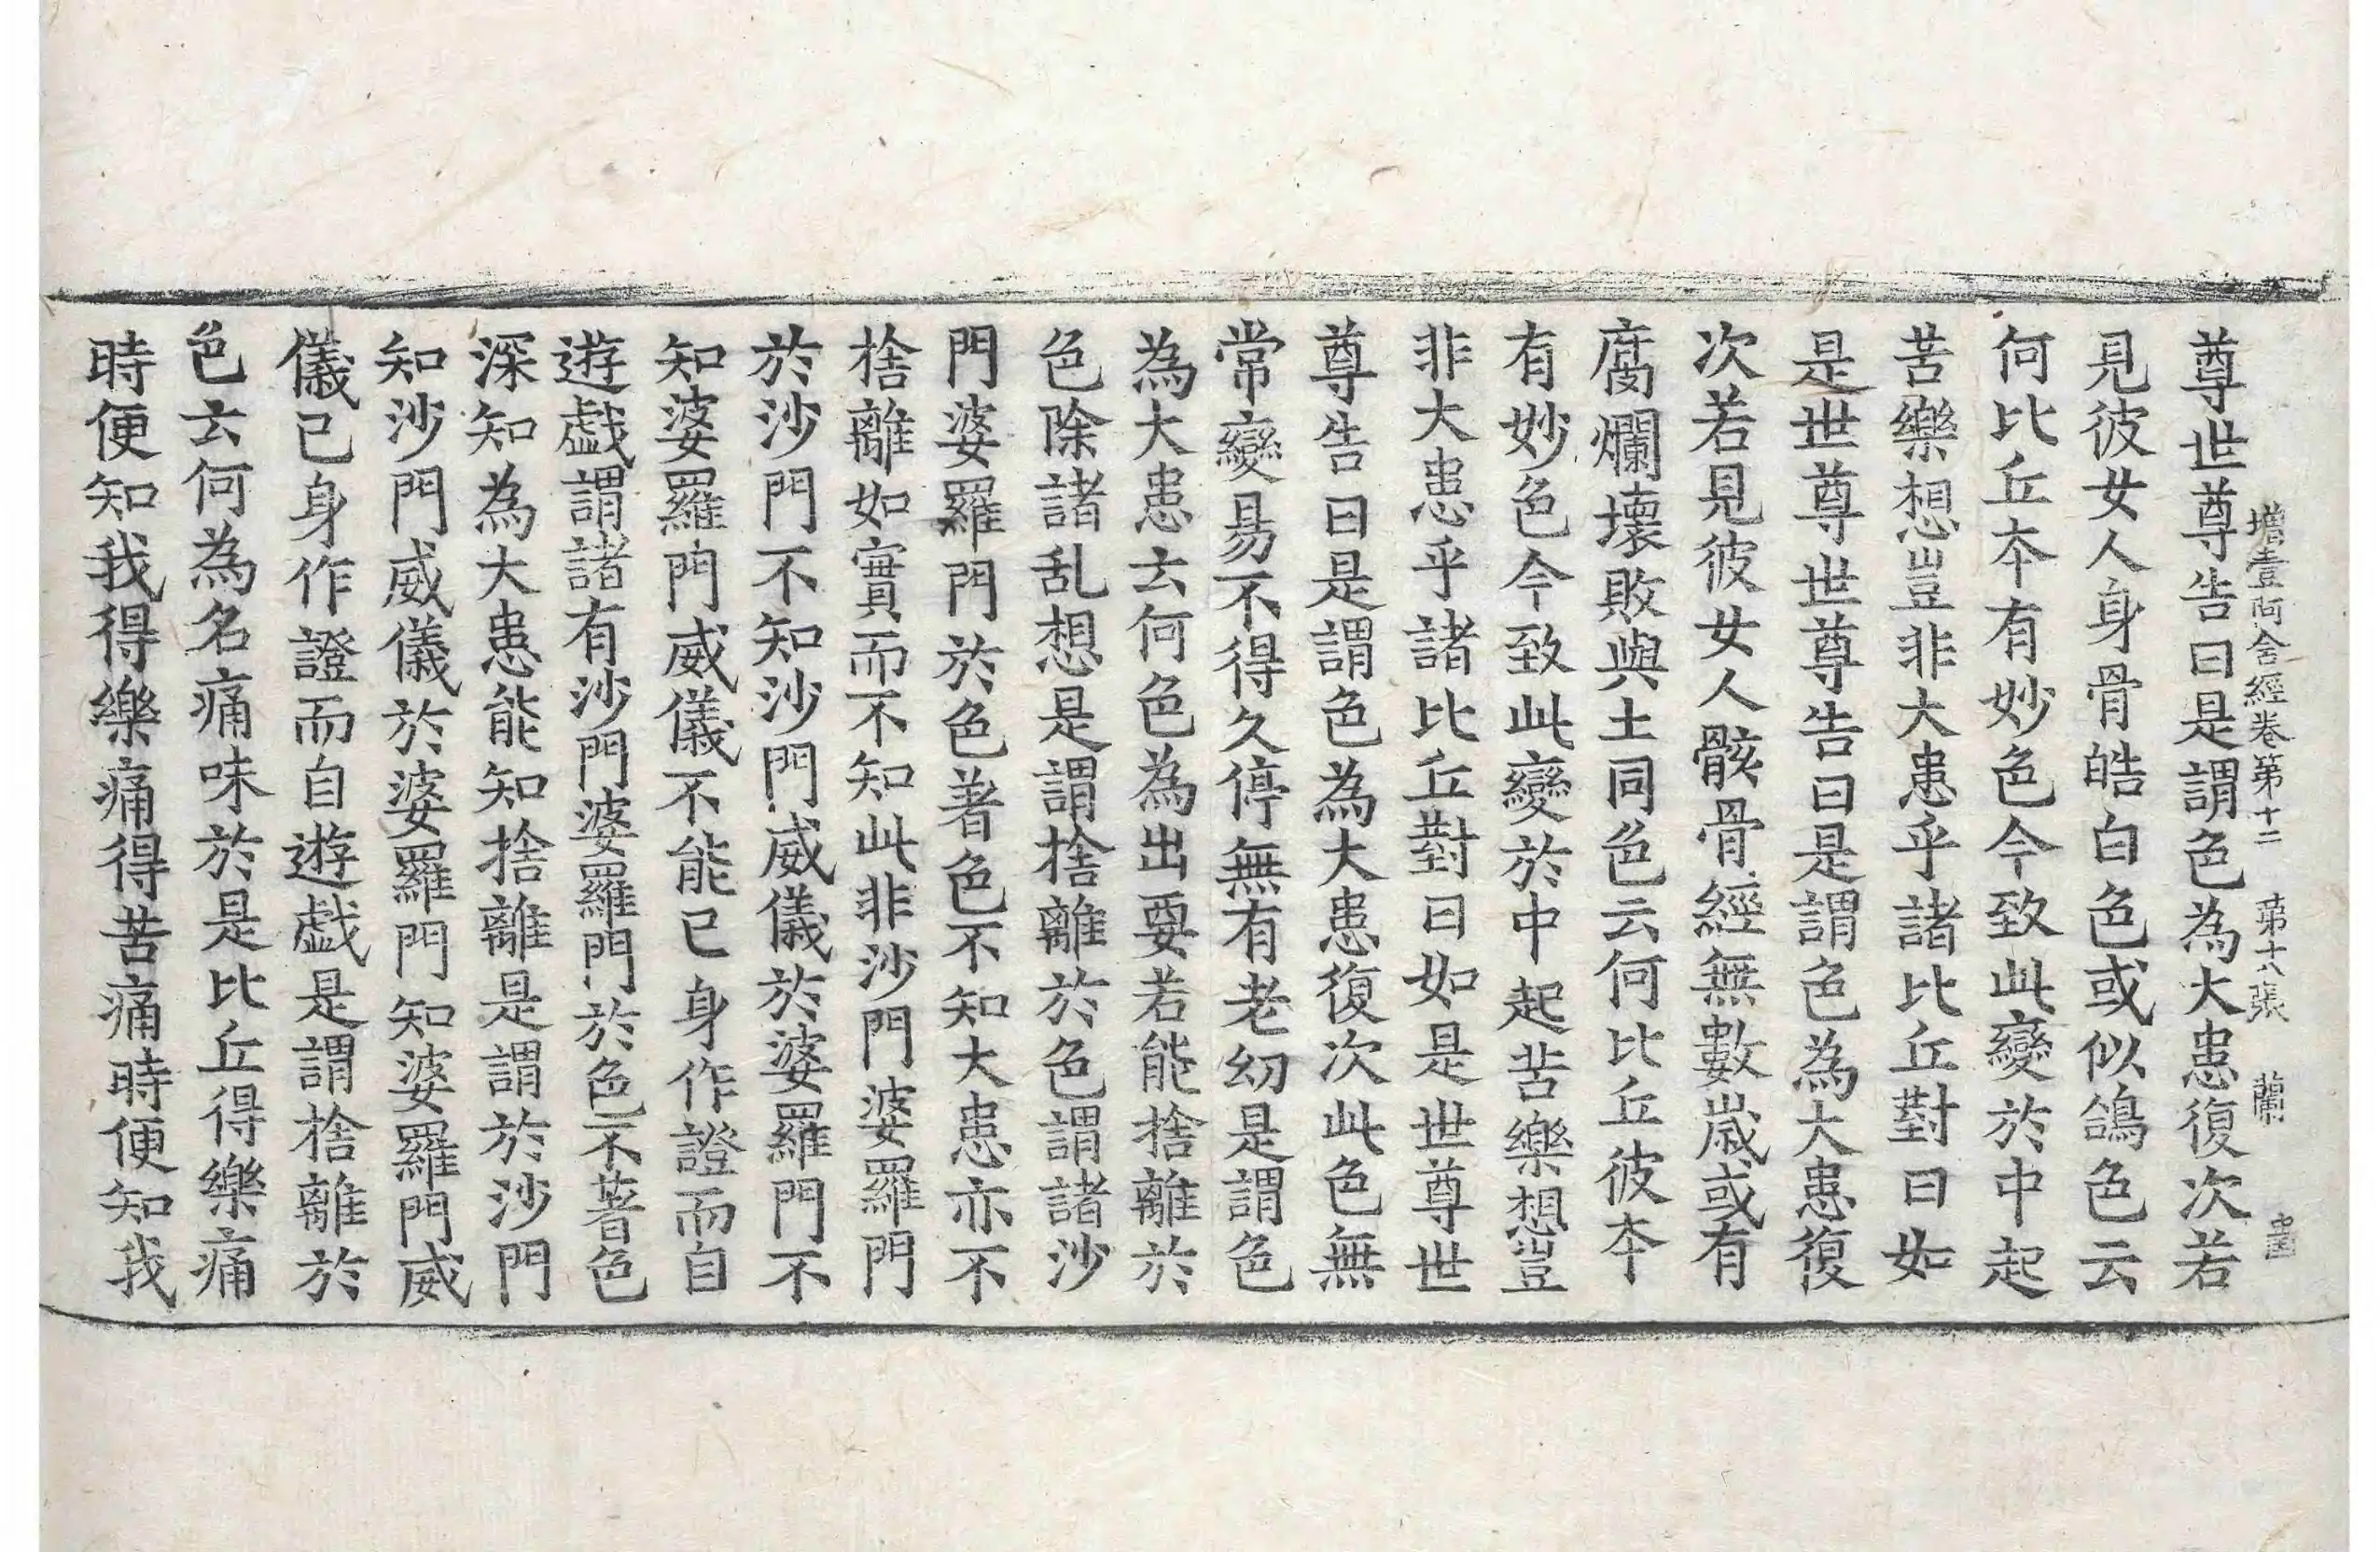 增壹阿含經卷第十二 第十八張 蘭
尊世尊告曰是謂色為大患復次若
見彼女人身骨皓白色或似鴿色云
何比丘夲有妙色今致此變於中起
苦樂想豈非大患乎諸比丘對曰如
是世尊世尊告曰是謂色為大患復
次若見彼女人骸骨經無數歲或有
腐爛壞敗與土同色云何比丘彼夲
有妙色今致此變於中起苦樂想豈
非大患乎諸比丘對曰如是世尊世
尊告曰是謂色為大患復次此色無
常變易不得久停無有老幼是謂色
為大患云何色為出要若能捨離於
色除諸乱想是謂捨離於色謂諸沙
門婆羅門於色著色不知大患亦不
捨離如實而不知此非沙門婆羅門
於沙門不知沙門威儀於婆羅門不
知婆羅門威儀不能已身作證而自
遊戲謂諸有沙門婆羅門於色不著色
深知為大患能知捨離是謂於沙門
知沙門威儀於婆羅門知婆羅門威
儀已身作證而自遊戲是謂捨離於
色云何為名痛味於是比丘得樂痛
時便知我得樂痛得苦痛時便知我